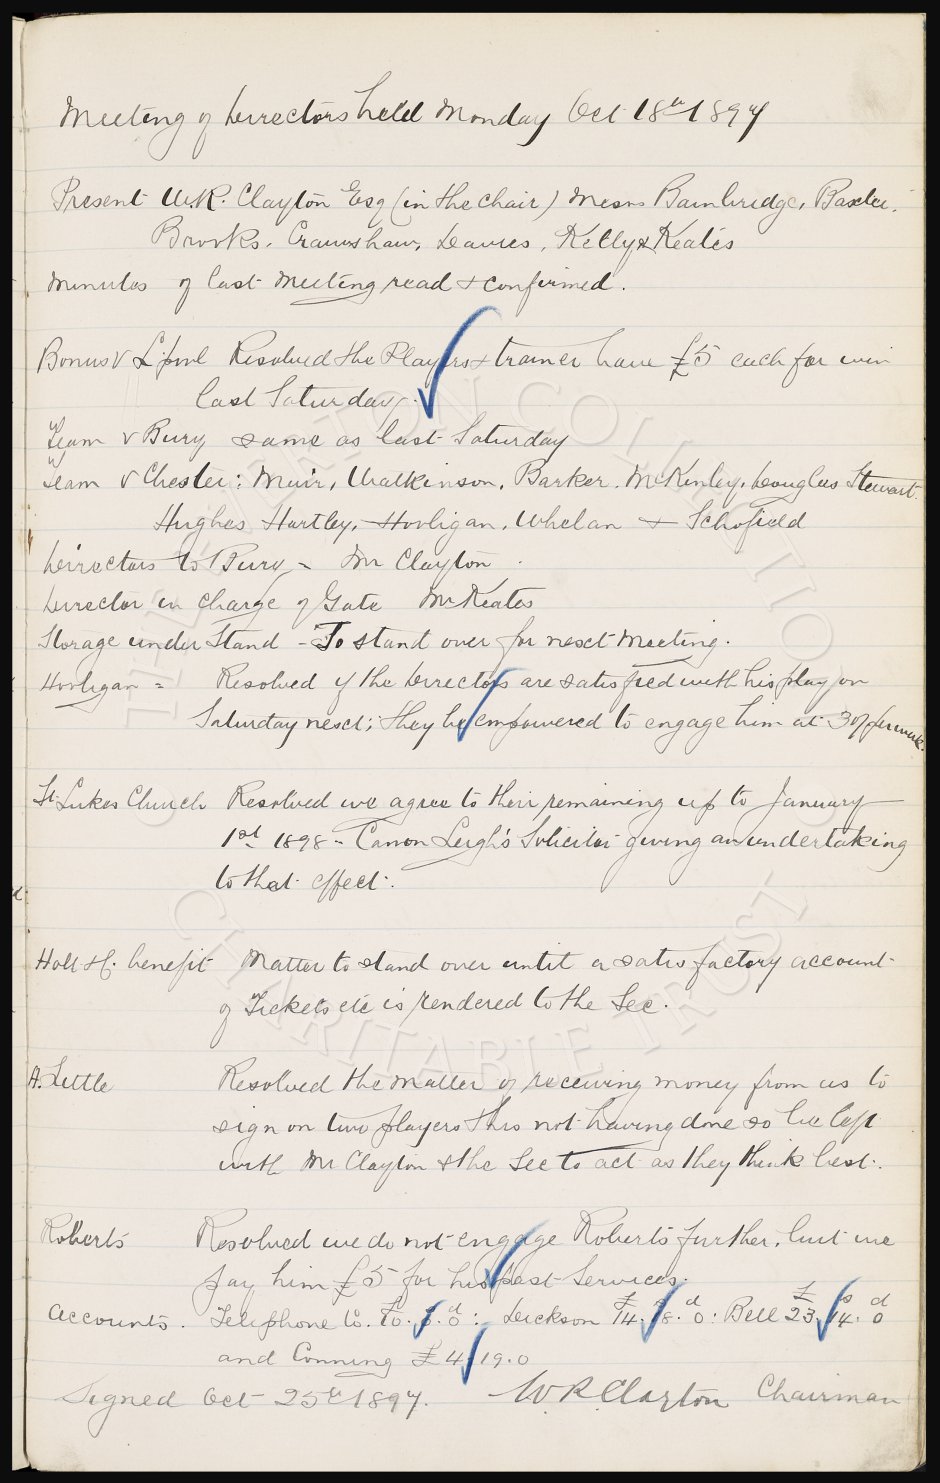 Meeting of Directors held Monday Oct 18th 1897
Present W.R. Clayton Esq (in the chair) Messrs Bainbridge, Baxter,
Brooks, Crawshaw, Davies, Kelly & Keates
Minutes of last meeting read & confirmed.
Bonus v L'pool Resolved the Players & trainer have £5 each for win
last Saturday.
Team v Bury same as last Saturday
Team v Chester: Muir, Watkinson, Barker, McKinley, Douglas Stewart
Hughes Hartley, Hooligan, Whelan & Schofield
Directors to Bury - Mr Clayton
Director in charge of Gate Mr Keates
Storage under Stand - To stand over for next meeting.
Hooligan = Resolved if the Directors are satisfied with his play on
Saturday next; they be empowered to engage him at 30/ per week.
St. Lukes Church Resolved we agree to their remaining up to January
1st 1898 - Canon Leigh's Solicitor giving an undertaking
to that effect.
Holt &c. benefit Matter to stand over until a satisfactory account
of Tickets etc is rendered to the Sec.
A. Little Resolved the matter of receiving money from us to
sign on two players & his not having done so be left
with Mr Clayton & the Sec to act as they think best.
Roberts Resolved we do not engage Roberts further, but we
pay him £5 for his past services.
Accounts. Telephone Co. £0. d 0: Dickson £14. 18. d 0: Bell £23. s 14. d 0
and Conning £4. 19. 0
Signed Oct 25th 1897. W.R. Clayton Chairman
THE EVERTON COLLECTION
CHARITABLE TRUST